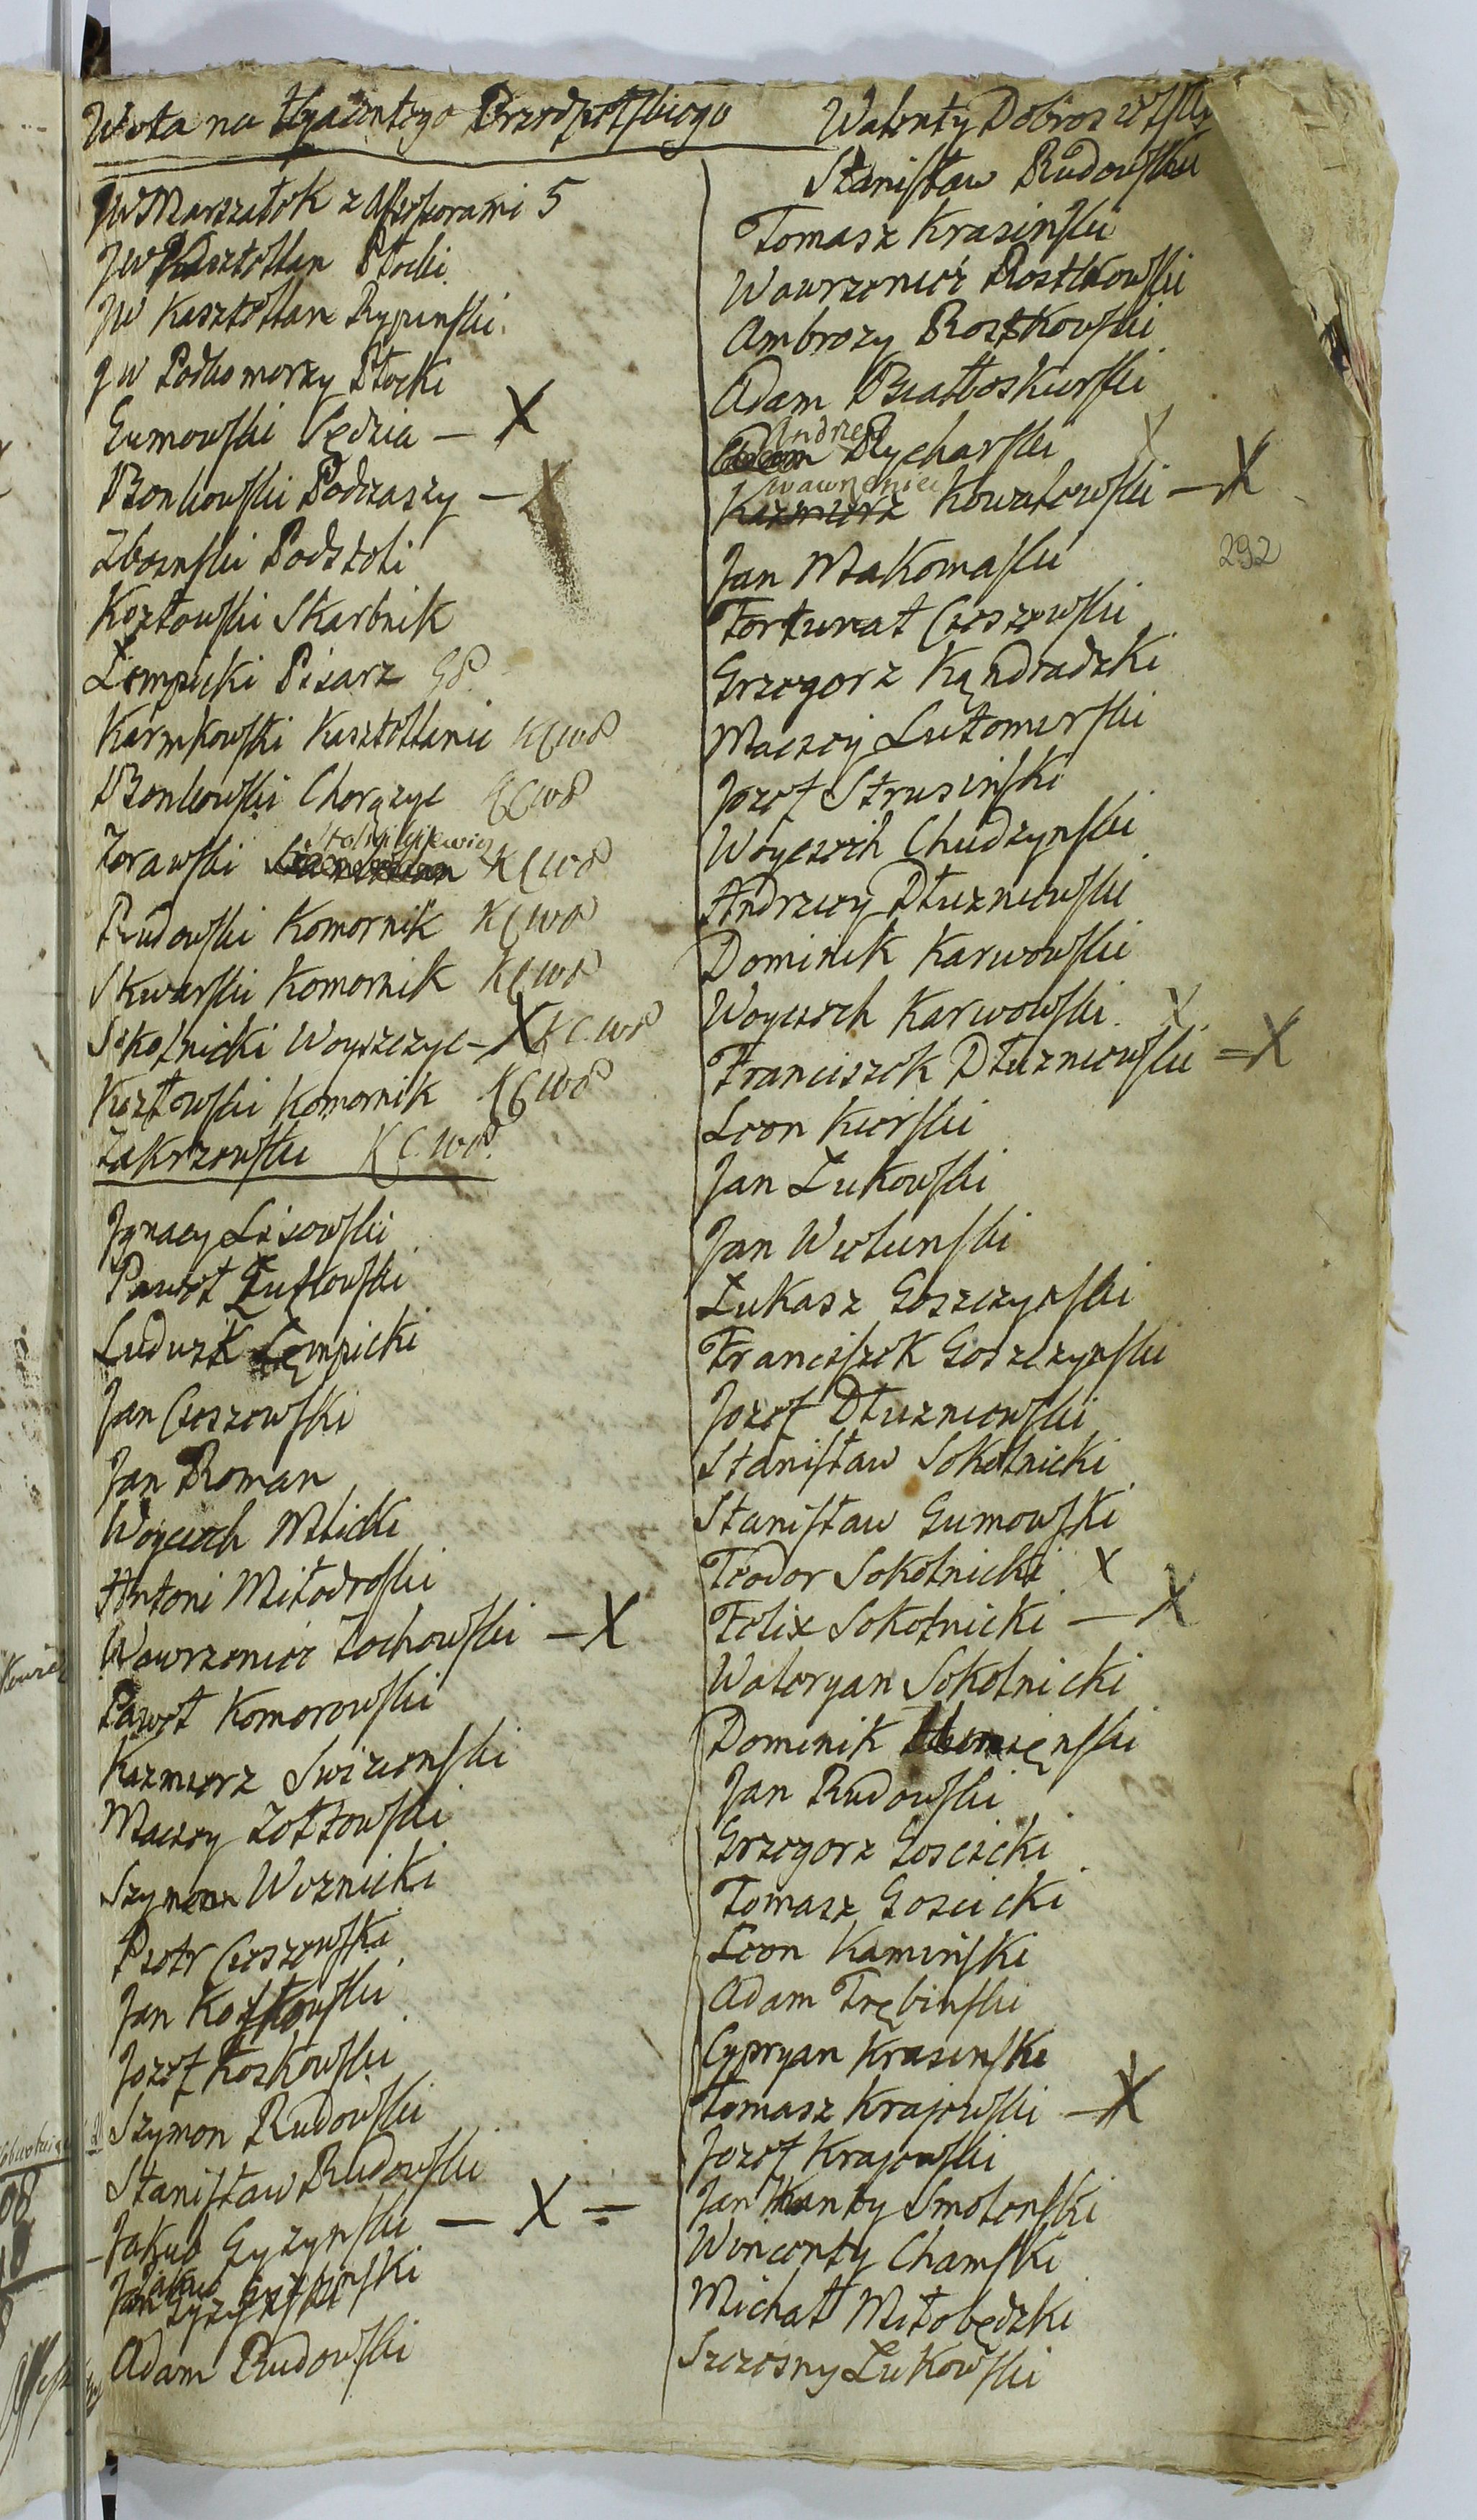 Wota na Hyacentego Brzozpolskiego
JW Marszałok z Assessorami 5
JW Kasztollan Płocki
JW Kasztollan Rypinski
JW Podkomorzy Płocki
Gumowski Sędzia — X
Bonkowski Podczaszy — X
Zboinski Podstoli
Kozłowski Skarbnik
Łempicki Pisarz
Karnkowski Kasztollanic KCWP
Bonkowski Chorązyc KCWP
Zorawski KCWP
Rudowski Komornik KCWP
Skwarski Komornik KCWP
Sokolnicki Woyszczyc — X KC.WP
Kozłowski Komornik KCWP
Zakrzewski KC.WP.
Jgnacy Lisowski
Paweł
Ludwik Łempicki
Jan Cieszewski
Jan Roman
Woyciech Mlicki
Antoni Miłodroski
Wawrzeniec Zochowski — X
Paweł Komorowski
Kazmierz Swizienski
Maciey Zołtowski
Szymon Woznicki
Piotr Cieszewski
Jan Koskowski
Jozef Koskowski
Szymon Rudowski
Stanisław Rudowski
Jakub Gyzynski — X =
Adam Rudowski
Walenty Dobroszelski
Stanisław Rudowski
Tomasz Krasinski
Wawrzeniec Rostkowski
Ambrozy Rostkowski
Adam Białłoskurski
Andrzey
Rycharski X
Wawrzeniec
Kazmierz Kowalewski — X
292
Jan Makomaski
Fortunat Cieszewski
Grzegorz Kąndradzki
Maciey Lutomirski
Jozef Strusiński
Woyciech Chudzynski
Andrzey Dłuzniewski
Dominik Karwowski
Woyciech Karwowski X
Franciszek Dłuzniewski = X
Leon Kierski
Jan Łukowski
Jan Wielunski
Łukasz Goszczynski
Franciszek Goszczynski
Jozef Dłuzniewski
Stanisław Sokolnicki
Stanisław Gumowski
Teodor Sokolnicki X
Felix Sokolnicki — X
Waleryan Sokolnicki
Dominik
Jan Rudowski
Grzegorz Goscicki
Tomasz Goscicki
Leon Kamiński
Adam Trębinski
Cypryan Krasinski
Tomasz Krajewski — X
Jozef Krajewski
Jan Kanty Smolenski
Wincenty Chamski
Michał Miłobędzki
Szczesny Łukowski